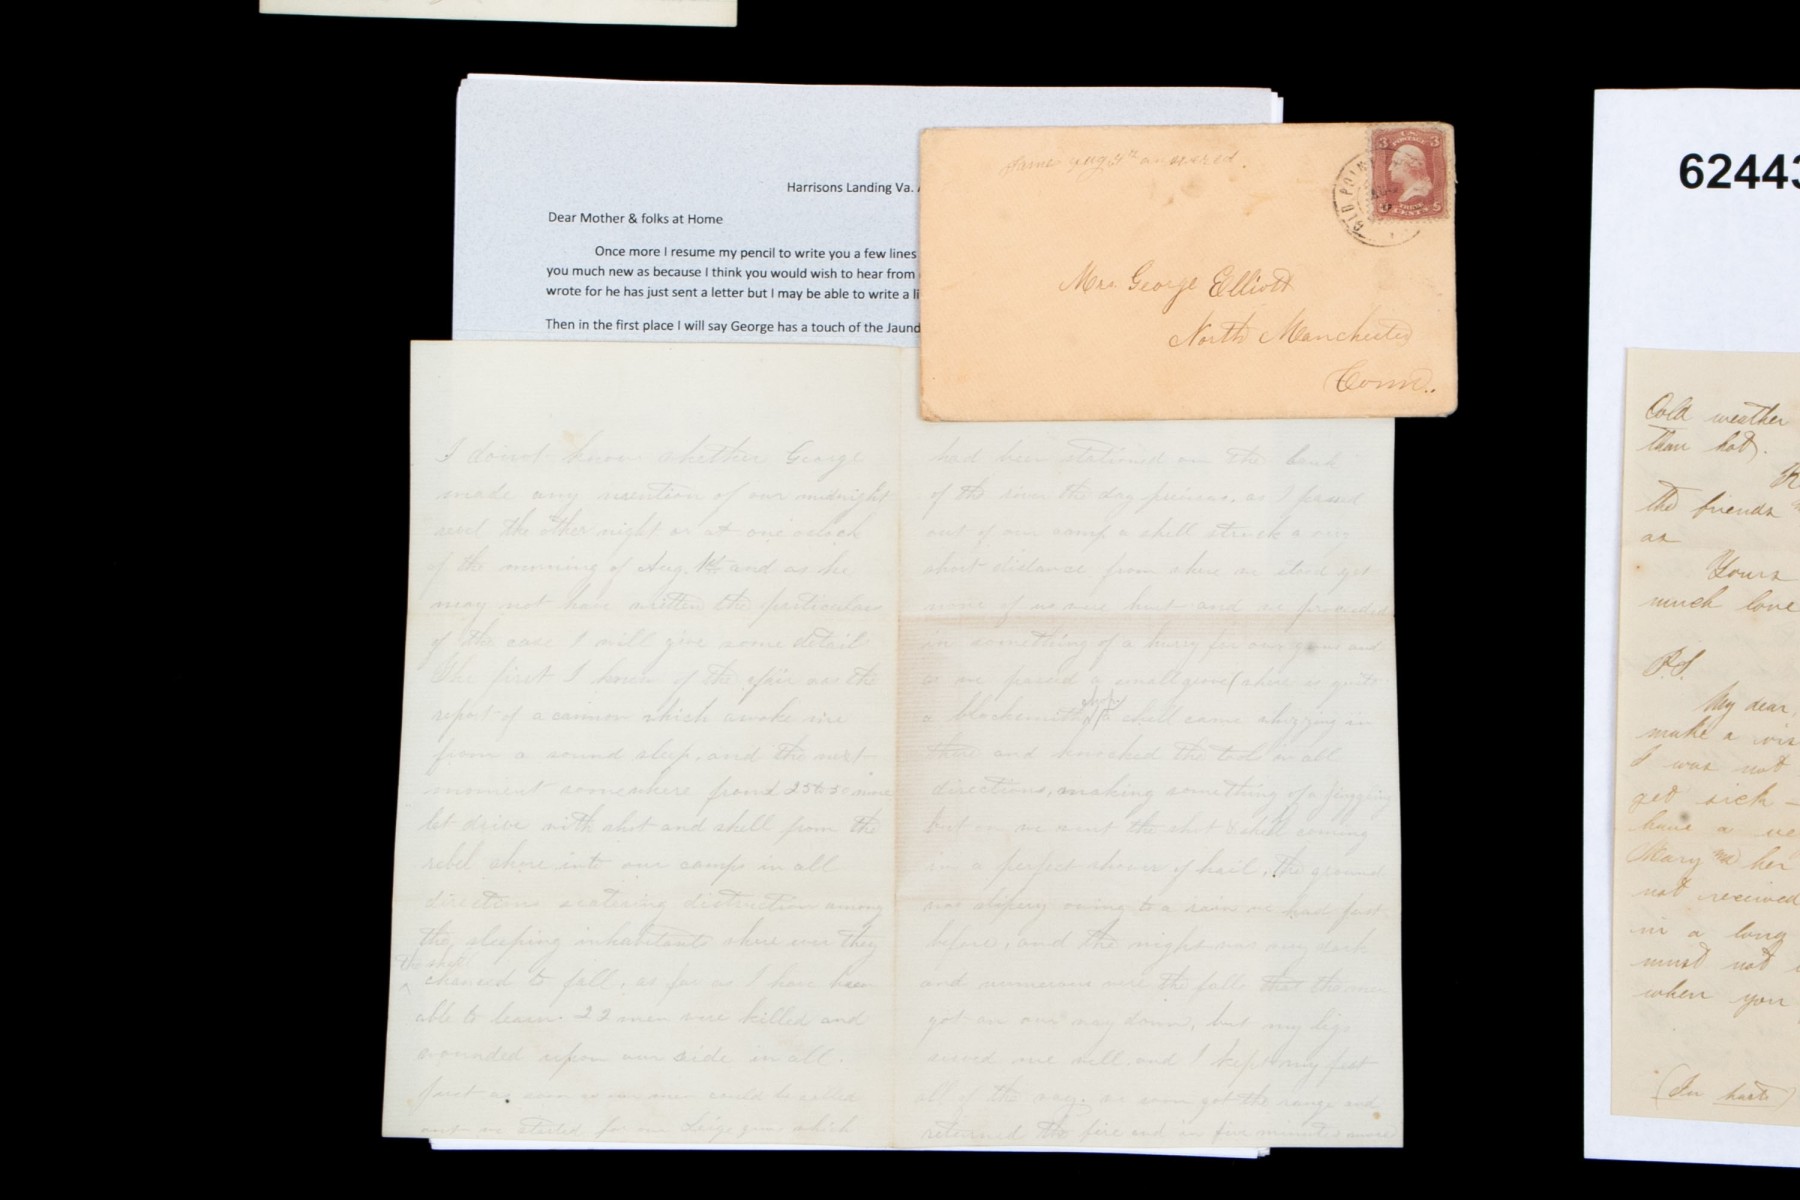 Harrisons Landing Va.
Dear Mother & folks at Home
Once more I resume my pencil to write you a few lines
you much new as because I think you would wish to hear from
wrote for he has just sent a letter but I may be able to write a li
Then in the first place I will say George has a touch of the Jaund
answered.
OLD POINT
U.S. POSTAGE
3 3
THREE CENTS
Mrs. George Elliott
North Manchester
Conn.
I do not know whether George
made any mention of our midnight
the other night or at one oclock
of the morning of Aug. 1st and as he
may not have written the particulars
of the case I will give some detail
The first I knew of the affair was the
report of a cannon which awoke me
from a sound sleep, and the next
moment somewhere from 25 to 50 more
let drive with shot and shell from the
rebel shore into our camp in all
directions scatering distruction among
the sleeping inhabitants where ever they
the shell
chanced to fall, as far as I have been
able to learn. 22 men were killed and
wounded upon our side in all.
Just as soon as our men could be called
out we started for our Seige guns which
had been stationed on the bank
of the river the day previous. as I passed
out of our camp a shell struck a very
short distance from where we stood yet
none of us were hurt and we proceeded
in something of a hurry for our guns and
as we passed a small grove (where is quite
a blacksmith shop) a shell came whizzing in
there and knocked the tools in all
directions, making something of a jingling
but on we went the shot & shell coming
in a perfect shower of hail, the ground
was slipery owing to a rain we had just
before, and the night was very dark
and numerous were the falls that the men
got on our way down, but my legs
served me well and I kept my feet
all of the way. we soon got the range and
returned the fire and in five minutes more
62443
Cold weather
than hot.
the friends
as
Yours
much love
P.S.
My dear,
make a vis
I was not
get sick –
have a ve
Mary her
not received
in a long
must not
when you
(In haste)